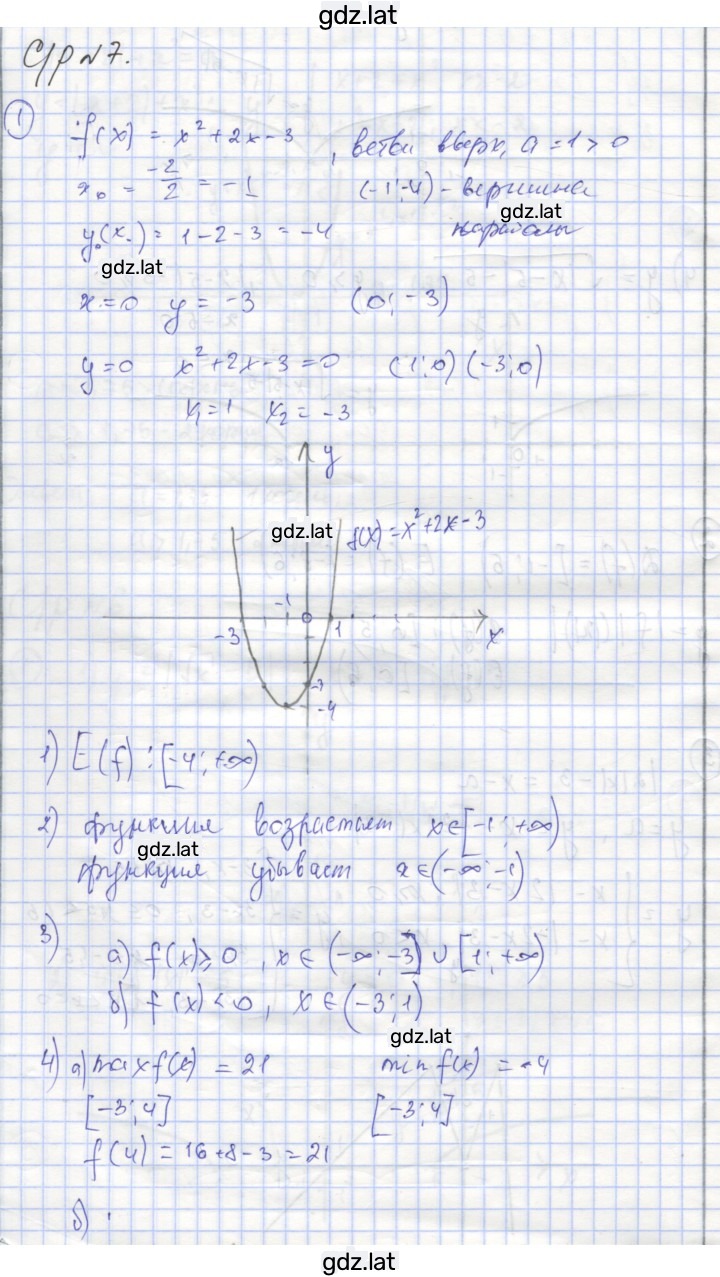 gdz.lat
С/р №7.
1
f(x) = x² + 2x - 3, ветви вверх, a = 1 > 0
x₀ = -2/2 = -1 (-1; -4) - вершина
gdz.lat
y₀(x₀) = 1 - 2 - 3 = -4 параболы
gdz.lat
x = 0 y = -3 (0; -3)
y = 0 x² + 2x - 3 = 0 (1; 0) (-3; 0)
x₁ = 1 x₂ = -3
y
gdz.lat
f(x) = x² + 2x - 3
-1 0
-3 1 x
-3
-4
1) E(f): [-4; +∞)
2) функция возрастает x ∈ [-1; +∞)
gdz.lat
функция убывает x ∈ (-∞; -1)
3)
а) f(x) ≥ 0, x ∈ (-∞; -3] ∪ [1; +∞)
б) f(x) < 0, x ∈ (-3; 1)
gdz.lat
4) а) max f(x) = 21 min f(x) = -4
[-3; 4] [-3; 4]
f(4) = 16 + 8 - 3 = 21
б)
gdz.lat